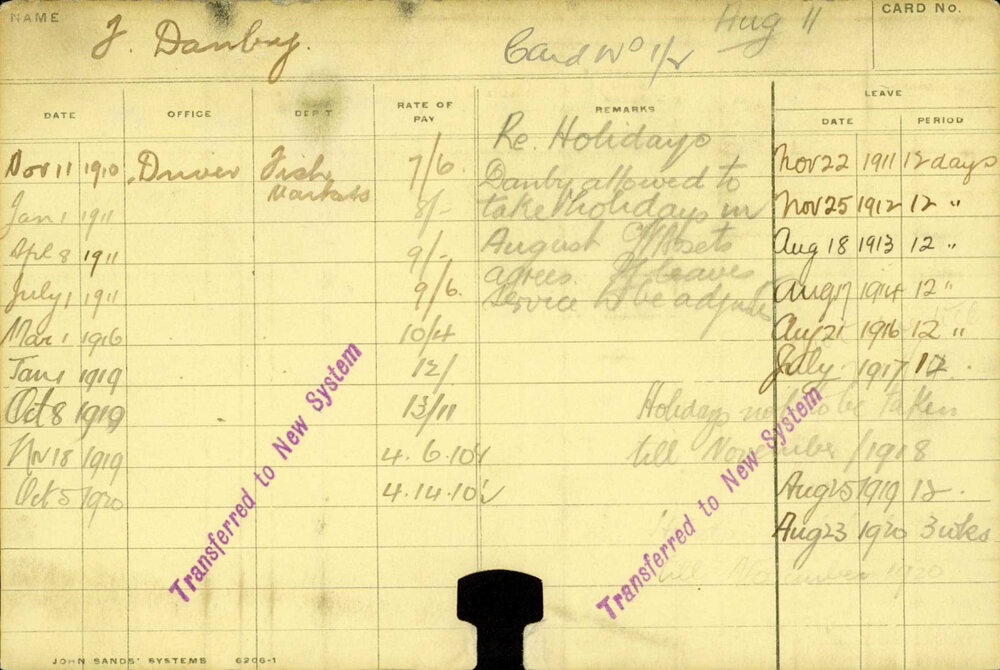 NAME J. Danby. Card No 1/2 Aug 11 CARD No.
DATE OFFICE DEPT RATE OF PAY REMARKS LEAVE
DATE PERIOD
Re. Holidays
Nov 11 1910 Driver Fish Markets 7/6. Danby allowed to Nov 22 1911 12 days
Jan 1 1911 8/- take holidays in Nov 25 1912 12 "
Apl 8 1911 9/- August If Assets Aug 18 1913 12 "
agrees. If leaves
July 1 1911 9/6. Service to be adjusted Aug 17 1914 12 "
Mar 1 1916 10/4 Aug 21 1916 12 "
Jan 1 1919 12/ July 1917 12.
Oct 8 1919 13/11 Holidays not to be taken
Nov 18 1919 4. 6. 10 till November /1918
Oct 5 1920 4. 14. 10 Aug 25 1919 12.
Aug 23 1920 3 wks
till 1920
Transferred to New System
Transferred to New System
JOHN SANDS' SYSTEMS 6206-1